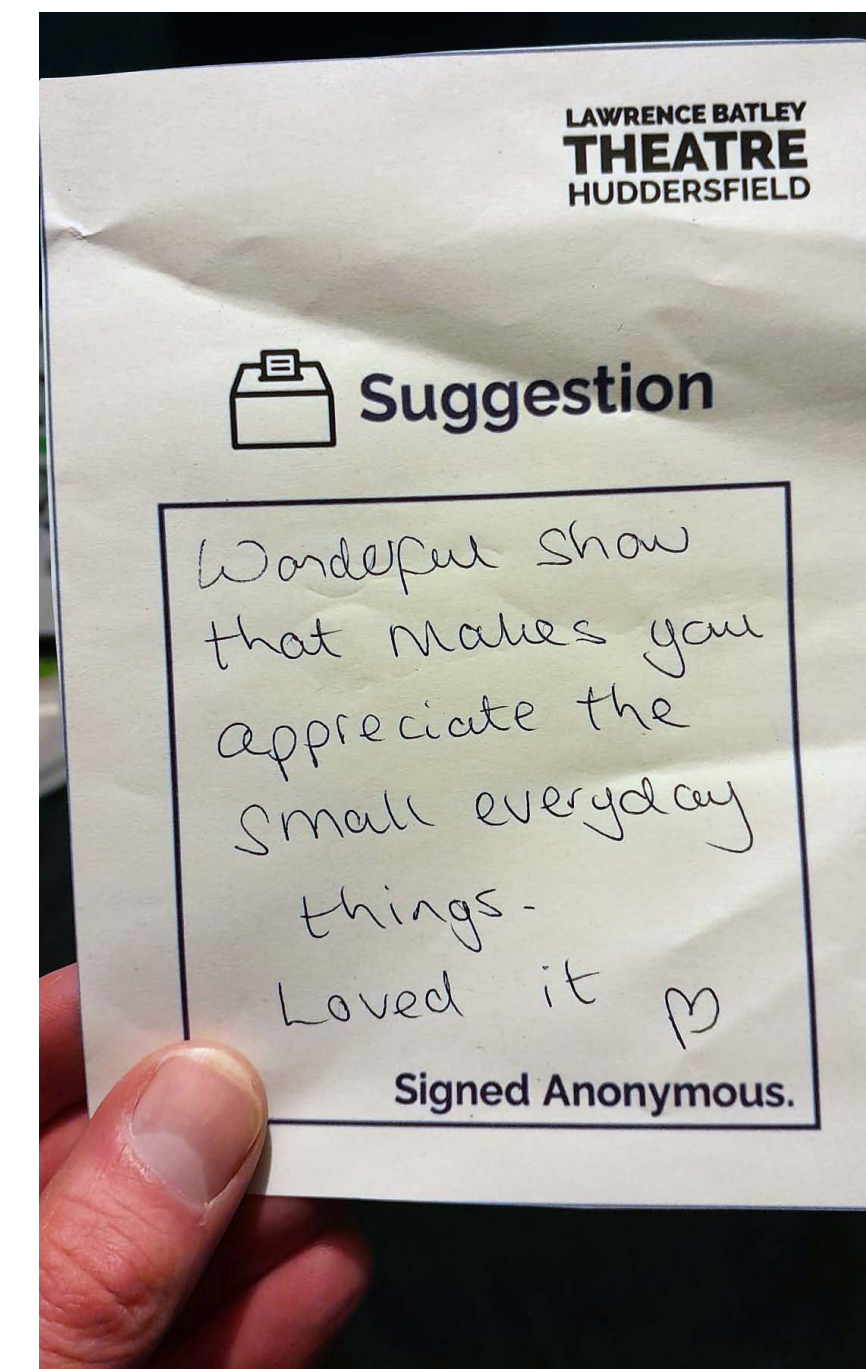 LAWRENCE BATLEY
THEATRE
HUDDERSFIELD
Suggestion
Wonderful show
that makes you
appreciate the
small everyday
things.
Loved it ♡
Signed Anonymous.